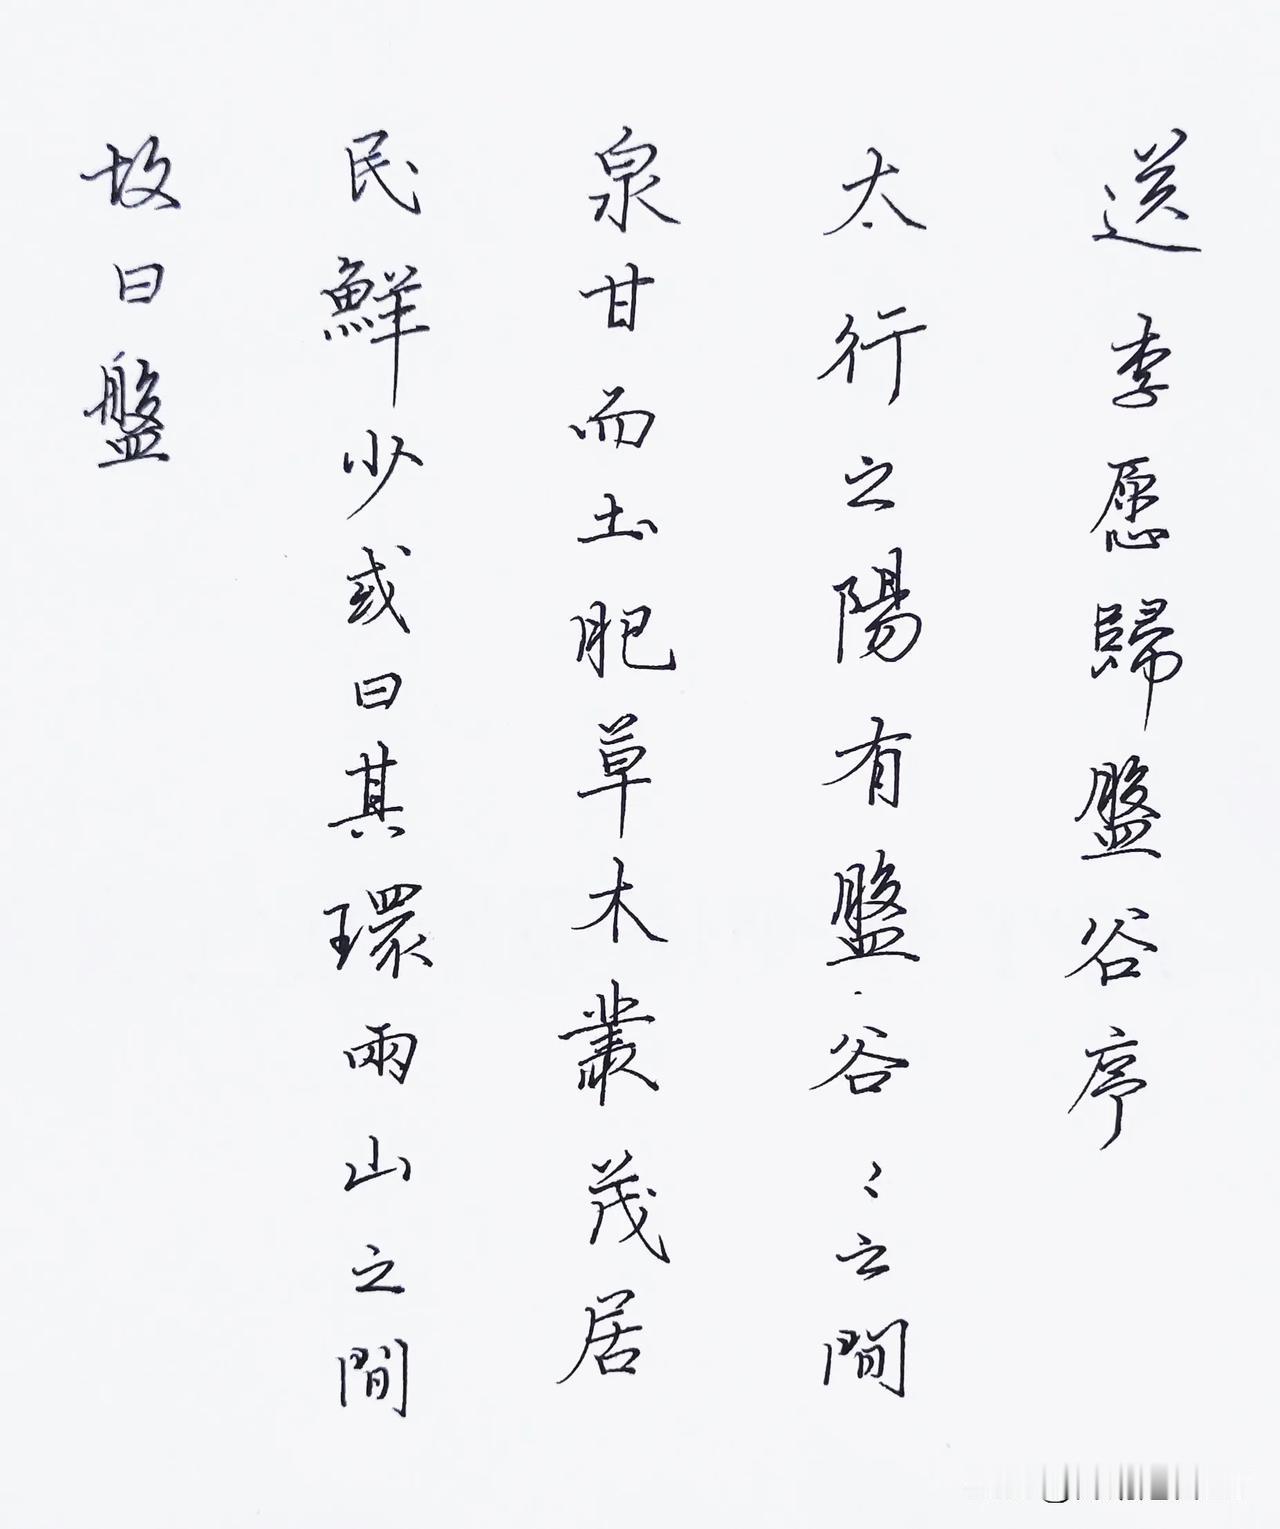 送李愿歸盤谷序
太行之陽有盤谷〻之間
泉甘而土肥草木叢茂居
民鮮少或曰其環兩山之間
故曰盤